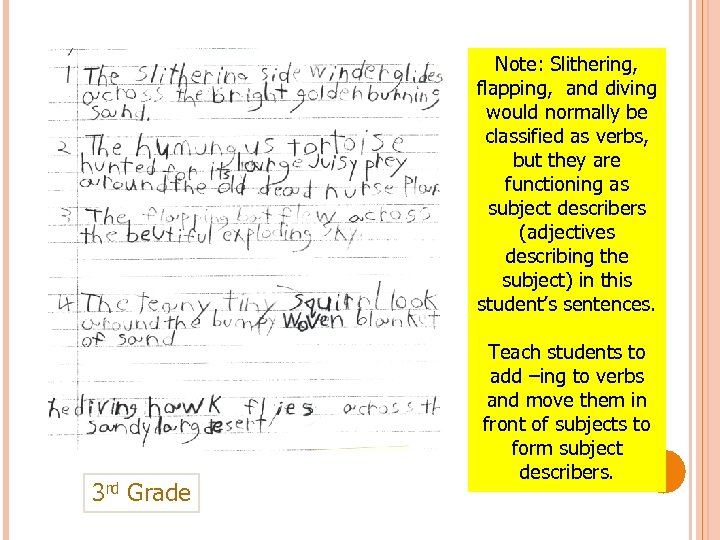 1 The slithering side winder glides
across the bright golden burning
sand.
2 The humungus tortoise
hunted for its large juisy prey
around the old dead nurse
3 The flapping bat flew across
the beutiful exploding sky.
4 The teany tiny squirrl look
around the bumpy woven blanket
of sand
he diving hawk flies across th
sandy larg desert/
3rd Grade
Note: Slithering,
flapping, and diving
would normally be
classified as verbs,
but they are
functioning as
subject describers
(adjectives
describing the
subject) in this
student’s sentences.
Teach students to
add –ing to verbs
and move them in
front of subjects to
form subject
describers.